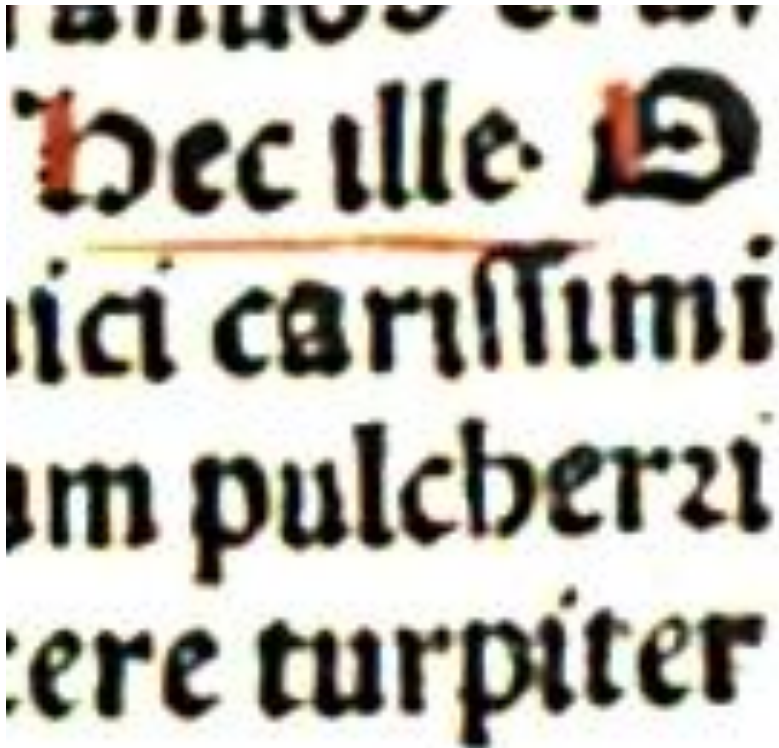 Hec ille.
ici cariſſimi
pulcherꝛi
ere turpiter